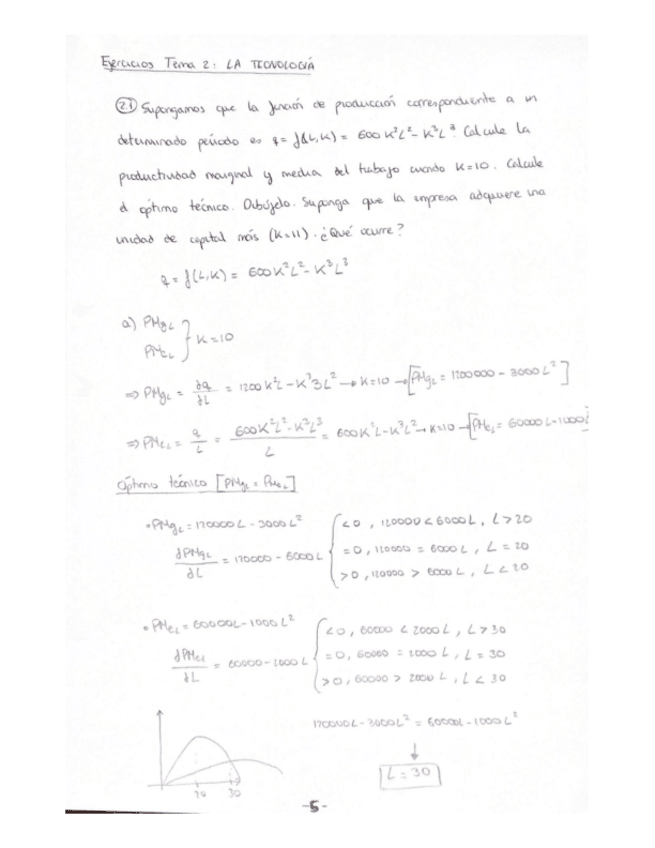 Ejercicios Tema 2: LA TECNOLOGÍA
2.1 Supongamos que la función de producción correspondiente a un
determinado período es q = f(L,K) = 600K²L² - K³L³. Calcule la
productividad marginal y media del trabajo cuando K=10. Calcule
el óptimo técnico. Dibújelo. Suponga que la empresa adquiere una
unidad de capital más (K=11). ¿Qué ocurre?
q = f(L,K) = 600K²L² - K³L³
a) PMgL
PMeL } K=10
⇒ PMgL = ∂q/∂L = 1200K²L - K³3L² → K=10 → [PMgL = 1200000 - 3000L²]
⇒ PMeL = q/L = (600K²L² - K³L³)/L = 600K²L - K³L² → K=10 → [PMeL = 60000L - 1000L
Óptimo técnico [PMgL = PMeL]
• PMgL = 120000L - 3000L²
∂PMgL/∂L = 120000 - 6000L
<0, 120000 < 6000L, L > 20
=0, 120000 = 6000L, L = 20
>0, 120000 > 6000L, L < 20
• PMeL = 60000L - 1000L²
∂PMeL/∂L = 60000 - 2000L
<0, 60000 < 2000L, L > 30
=0, 60000 = 2000L, L = 30
>0, 60000 > 2000L, L < 30
120000L - 3000L² = 60000L - 1000L²
↓
L = 30
20 30
-5-